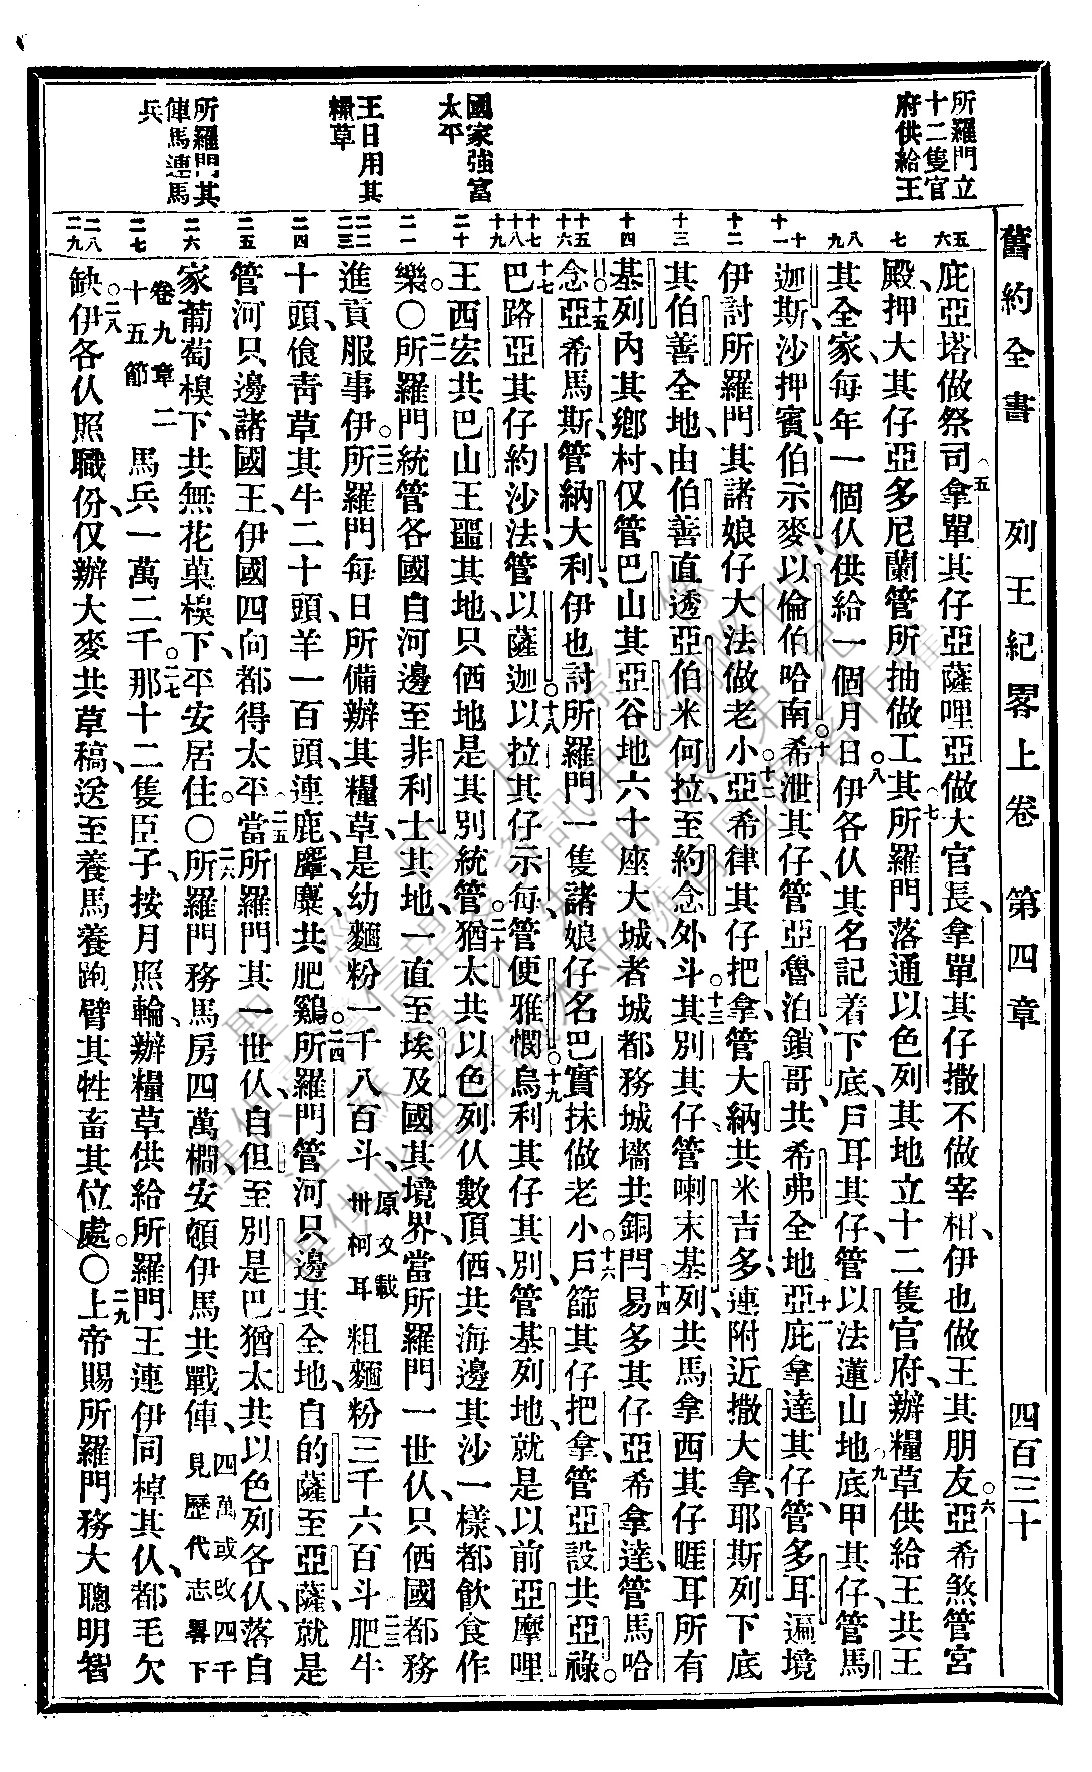 舊約全書　列王紀畧上卷　第四章　四百三十
所羅門立
十二隻官
府供給王
國家強富
太平
王日用其
糧草
所羅門其
俥馬連馬
兵
五
六
七
八
九
十
十一
十二
十三
十四
十五
十六
十七
十八
十九
二十
二一
二二
二三
二四
二五
二六
二七
二八
二九
庇亞塔做祭司拿單其仔亞薩哩亞做大官長、拿單其仔撒不做宰相、伊也做王其朋友。亞希煞管宮
殿、押大其仔亞多尼蘭管所抽做工其。所羅門落通以色列其地立十二隻官府、辦糧草供給王共王
其全家、每年一個伩供給一個月日、伊各伩其名記着下底、戶耳其仔、管以法蓮山地、底甲其仔、管馬
迦斯、沙押賓、伯示麥、以倫伯哈南。希泄其仔、管亞魯泊、鎖哥共希弗全地、亞庇拿達其仔、管多耳遍境
伊討所羅門其諸娘仔大法做老小。亞希律其仔把拿、管大納共米吉多、連附近撒大拿、耶斯列下底
其伯善全地、由伯善直透亞伯米何拉、至約念外斗其別其仔、管喇末基列、共馬拿西其仔睚耳所有
基列內其鄉村、仅管巴山其亞谷地六十座大城、者城都務城墻共銅閂、易多其仔亞希拿達、管馬哈
念。亞希馬斯、管納大利、伊也討所羅門一隻諸娘仔名巴實抹做老小。戶篩其仔把拿、管亞設共亞祿。
巴路亞其仔約沙法、管以薩迦。以拉其仔示每、管便雅憫。烏利其仔其別、管基列地、就是以前亞摩哩
王西宏共巴山王噩其地、只俩地是其別統管。猶太共以色列伩數頂俩、共海邊其沙一樣、都飲食作
樂。○所羅門統管各國、自河邊至非利士其地、一直至埃及國其境界、當所羅門一世伩、只俩國都務
進貢服事伊。所羅門每日所備辦其糧草、是幼麵粉一千八百斗、原文載卅柯耳粗麵粉三千六百斗、肥牛
十頭、飧靑草其牛二十頭、羊一百頭、連鹿、麞、麋共肥鷄。所羅門管河只邊其全地、自的薩至亞薩、就是
管河只邊諸國王、伊國四向都得太平。當所羅門其一世伩、自但至別是巴、猶太共以色列各伩、落自
家葡萄模下、共無花菓模下、平安居住。○所羅門務馬房四萬櫊、安頓伊馬共戰俥、四萬或改四千見歷代志畧下
卷九章二十五節馬兵一萬二千。那十二隻臣子、按月照輪、辦糧草供給所羅門王、連伊同棹其伩、都毛欠
缺。伊各伩照職份、仅辦大麥共草稿、送至養馬養跑臂其牲畜其位處。○上帝賜所羅門務大聰明智